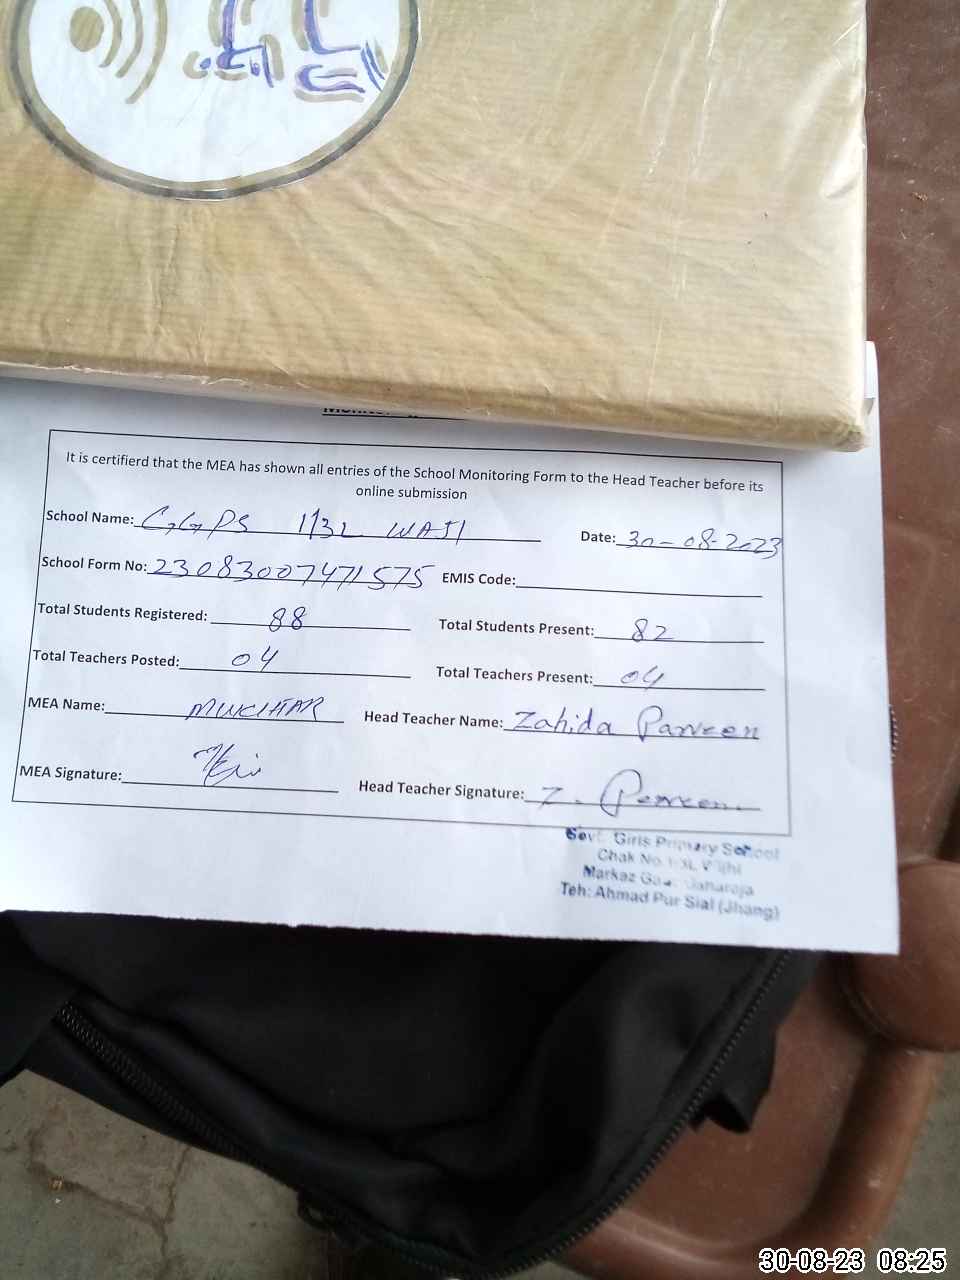 It is certifierd that the MEA has shown all entries of the School Monitoring Form to the Head Teacher before its
online submission
School Name: GGPS 113L WAJI Date: 30-08-2023
School Form No: 23083007471575 EMIS Code:
Total Students Registered: 88 Total Students Present: 82
Total Teachers Posted: 04 Total Teachers Present: 04
MEA Name: MUKHTAR Head Teacher Name: Zahida Parveen
MEA Signature: Head Teacher Signature: Z. Parveen
Govt. Girls Primary School
Chak No.
Markaz
Teh: Ahmad Pur Sial (Jhang)
30-08-23 08:25